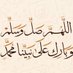 اللهم صل وسلم
وبارك على نبينا محمد